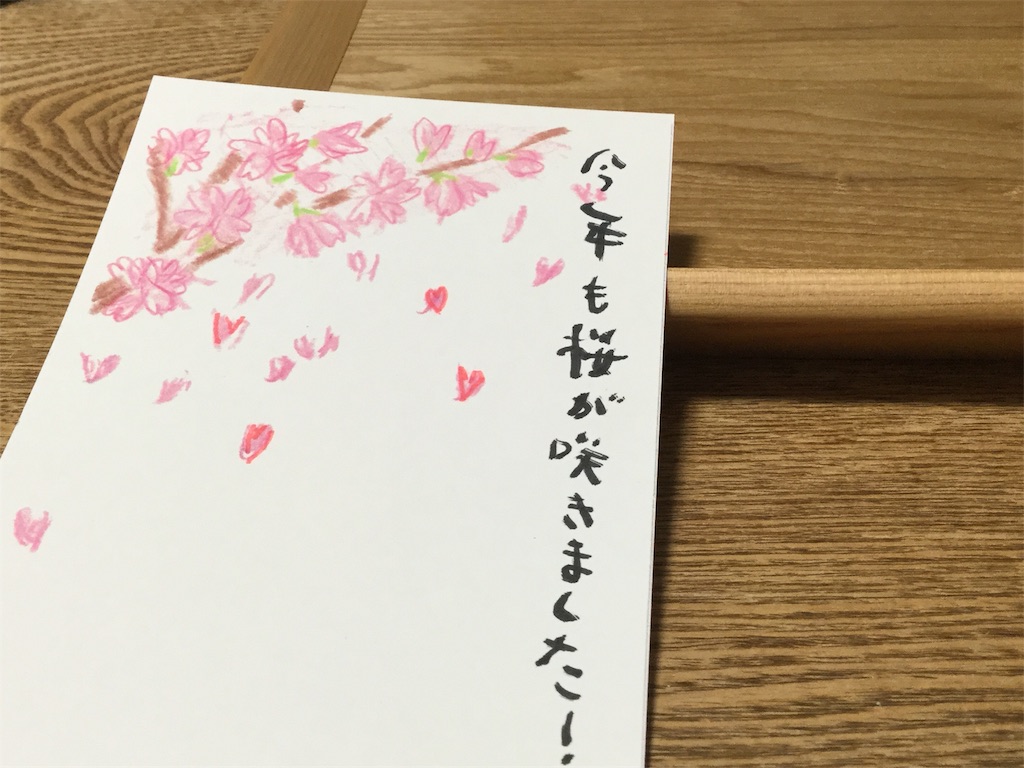 今年も桜が咲きました!